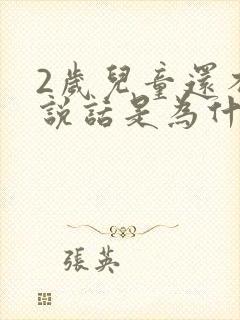 2歲兒童還
說話是為什
張英